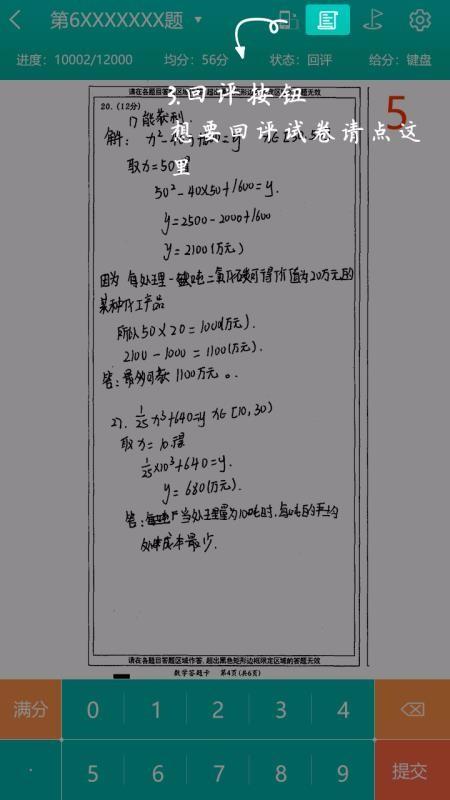 第6XXXXXXX题
进度：10002/12000 均分：56分 状态：回评 给分：键盘
请在各题目答题区
效
3.回评按钮
想要回评试卷请点这里
5
20.（12分）
1) 能获利.
解：
取x=50时
50²-40×50+1600=y.
y=2500-2000+1600
y=2100(万元)
因为 每处理一吨二氧化碳可得价值为20万元的
某种化工产品
所以 50×20=1000(万元).
2100-1000=1100(万元).
答：最多可获1100万元。
2). 1/25 x³+640=y x∈[10,30)
取x=10.得
1/25×10³+640=y.
y=680(万元).
答：当处理量为10吨时，每吨的平均
处理成本最少.
请在各题目答题区域作答，超出黑色矩形边框限定区域的答题无效
数学答题卡 第4页(共6页)
满分 0 1 2 3 4
· 5 6 7 8 9 提交